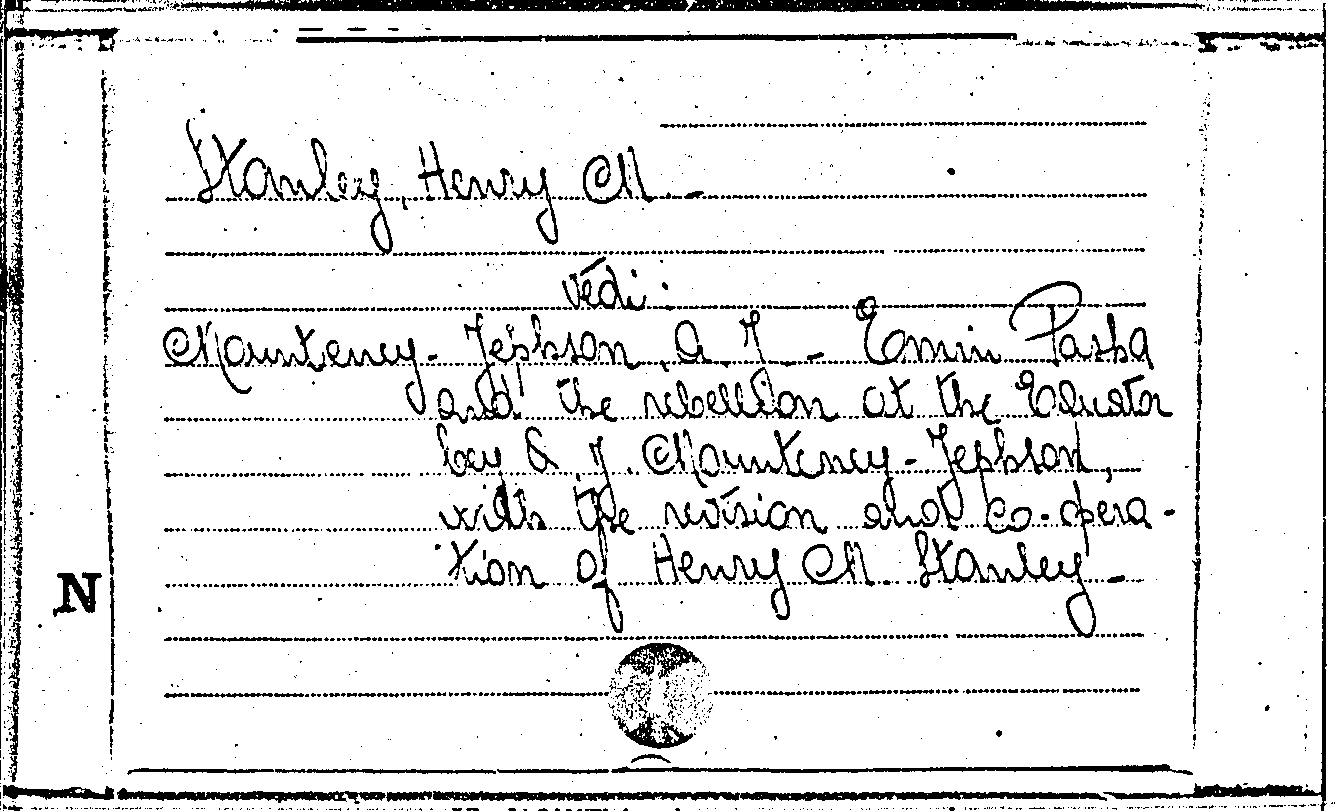 Stanley, Henry M. -
vedi:
Mounteney-Jephson, A. J. - Emin Pasha
and the rebellion at the Equator
by A. J. Mounteney-Jephson,
with the revision and co-opera-
tion of Henry M. Stanley -
N